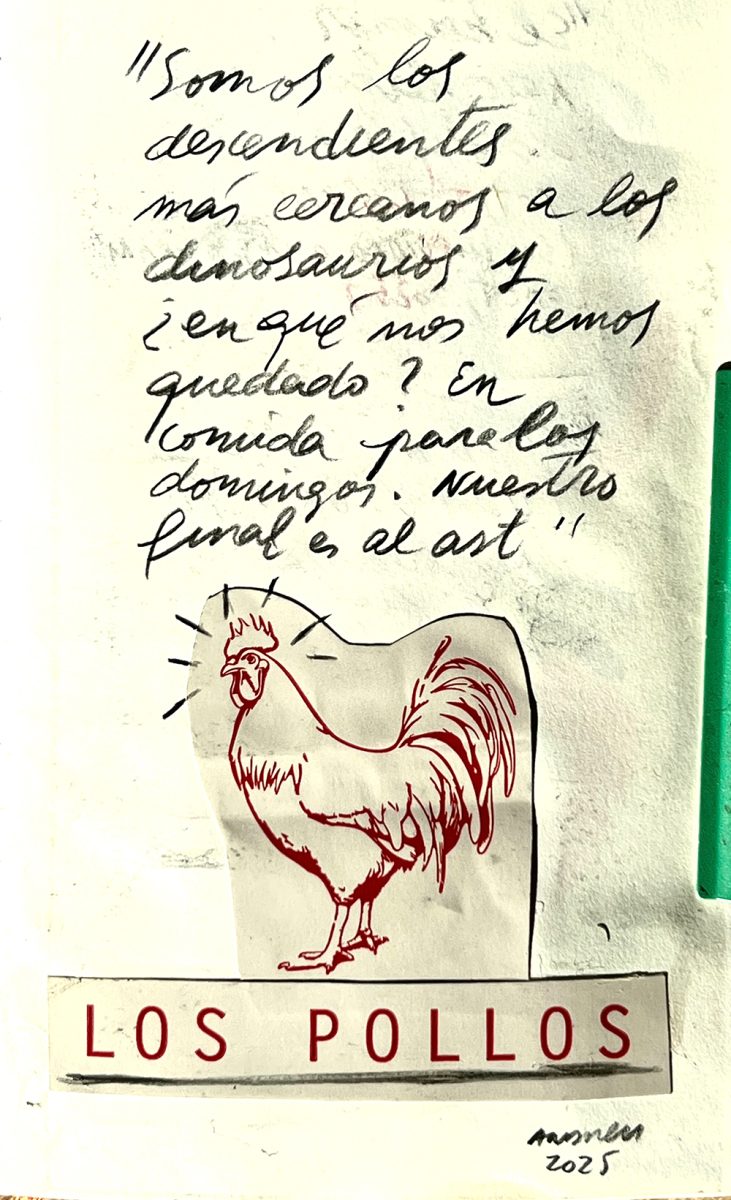 "Somos los
descendientes
más cercanos a los
dinosaurios y
¿en qué nos hemos
quedado? En
comida para los
domingos. Nuestro
final es al ast"
LOS POLLOS
2025